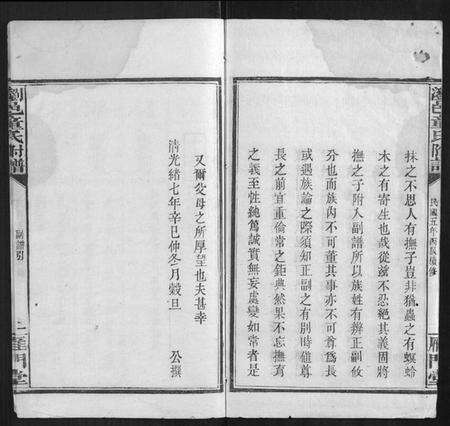 瀏邑童氏附譜
民國五年丙辰續修
雁門堂
抹之不恩人有撫子豈非猶蟲之有螟蛉
木之有寄生也哉從茲不忍絕其義固將
撫之子附人副譜所以族姓有辨正副攸
分也而族內不可董其事亦不可尊爲長
或遇族論之際須知正副之有別時雖尊
長之前宜重倫常之鉅典然果不忘撫育
之義至性純篤誠實無妄處變如常者是
又爾父母之所厚望也夫甚幸
清光緒七年辛巳仲冬月穀旦
公撰
瀏邑童氏附譜
副譜引
二
雁門堂